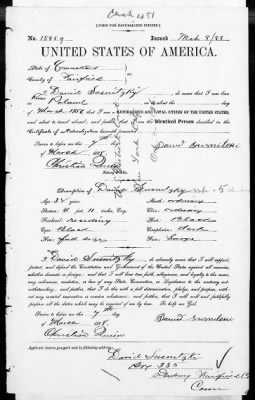 [FORM FOR NATURALIZED CITIZEN.]
No. 15859 Issued Mch 8/88
UNITED STATES OF AMERICA.
State of Connecticut
County of Fairfield
I, David Susnitzky, do swear that I was born
in Poland on or about the day
of that I am a NATURALIZED AND LOYAL CITIZEN OF THE UNITED STATES,
and about to travel abroad; and further, that I am the Identical Person described in the
Certificate of Naturalization herewith presented.
Sworn to before me this 7th day
of March 188
Notary Public.
Description of David Susnitzky
Age: Mouth: ordinary
Stature: feet, inches, Eng. Chin: ordinary
Hair:
Complexion: dark
Face:
I, David Susnitzky, do solemnly swear that I will support,
protect, and defend the Constitution and Government of the United States against all enemies,
whether domestic or foreign; and that I will bear true faith, allegiance, and loyalty to the same,
any ordinance, resolution, or law of any State, Convention, or Legislature to the contrary not-
withstanding; and further, that I do this with a full determination, pledge, and purpose, with-
out any mental reservation or evasion whatsoever; and further, that I will well and faithfully
perform all the duties which may be required of me by law. So help me God.
Sworn to before me this 7th day
of March 188
Applicant desires passport sent to following address:
David Susnitzki
Box 335
Danbury Fairfield Co
Conn